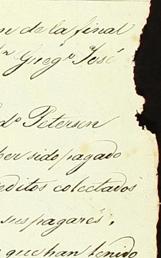 n de la final
n Gregº José
Dº Petersen
ber sido pagado
editos colectados
sus pagarés,
que han tenido